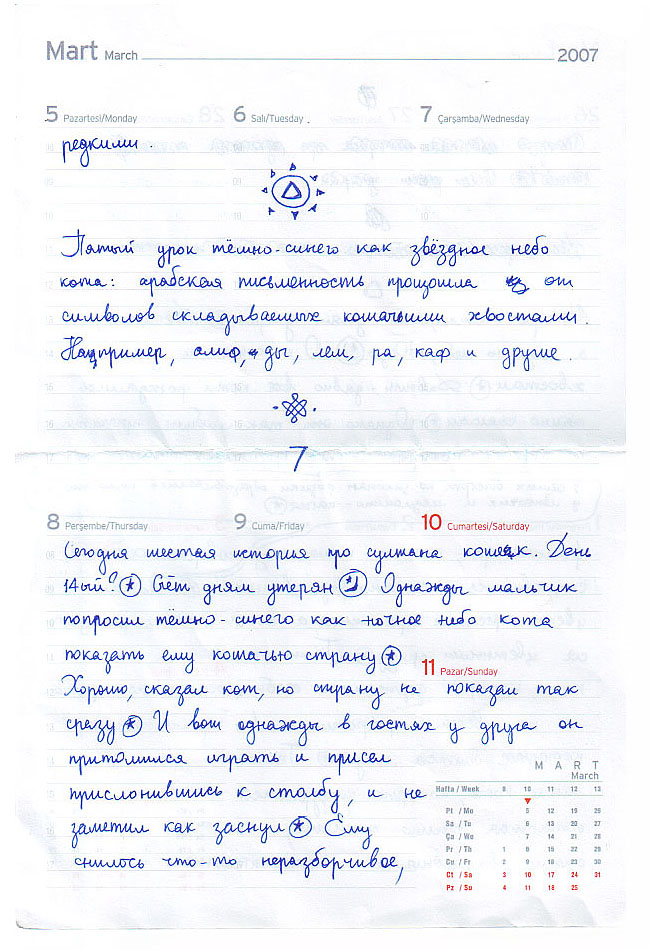 Mart March 2007
5 Pazartesi/Monday 6 Salı/Tuesday 7 Çarşamba/Wednesday
редкими.
Пятый урок тёмно-синего как звёздное небо
кота: арабская письменность произошла от
символов складываемых кошачьими хвостами.
Например, алиф, ды, лем, ра, каф и другие.
7
8 Perşembe/Thursday 9 Cuma/Friday 10 Cumartesi/Saturday
Сегодня шестая история про султана кошек. День
14ый? Счёт дням утерян Однажды мальчик
попросил тёмно-синего как ночное небо кота
показать ему кошачью страну
11 Pazar/Sunday
Хорошо, сказал кот, но страну не показал так
сразу И вот однажды в гостях у друга он
притомился играть и присел
прислонившись к столбу, и не
заметил как заснул Ему
снилось что-то неразборчивое,
M A R T
March
Hafta / Week 8 10 11 12 13
Pt / Mo 5 12 19 26
Sa / Tu 6 13 20 27
Ça / We 7 14 21 28
Pr / Th 1 8 15 22 29
Cu / Fr 2 9 16 23 30
Ct / Sa 3 10 17 24 31
Pz / Su 4 11 18 25